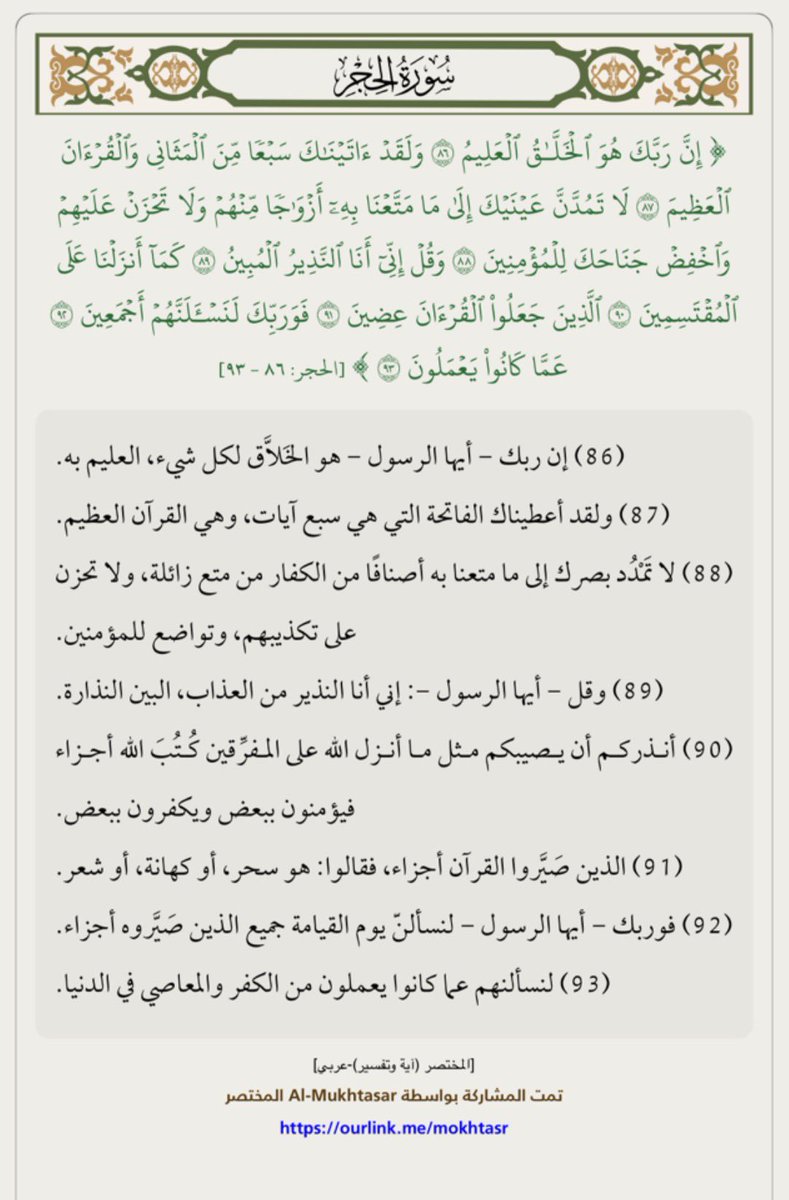 سُورَةُ الحِجْرِ
﴿ إِنَّ رَبَّكَ هُوَ ٱلۡخَلَّٰقُ ٱلۡعَلِيمُ ٨٦ وَلَقَدۡ ءَاتَيۡنَٰكَ سَبۡعٗا مِّنَ ٱلۡمَثَانِي وَٱلۡقُرۡءَانَ
ٱلۡعَظِيمَ ٨٧ لَا تَمُدَّنَّ عَيۡنَيۡكَ إِلَىٰ مَا مَتَّعۡنَا بِهِۦٓ أَزۡوَٰجٗا مِّنۡهُمۡ وَلَا تَحۡزَنۡ عَلَيۡهِمۡ
وَٱخۡفِضۡ جَنَاحَكَ لِلۡمُؤۡمِنِينَ ٨٨ وَقُلۡ إِنِّيٓ أَنَا ٱلنَّذِيرُ ٱلۡمُبِينُ ٨٩ كَمَآ أَنزَلۡنَا عَلَى
ٱلۡمُقۡتَسِمِينَ ٩٠ ٱلَّذِينَ جَعَلُواْ ٱلۡقُرۡءَانَ عِضِينَ ٩١ فَوَرَبِّكَ لَنَسۡـَٔلَنَّهُمۡ أَجۡمَعِينَ ٩٢
عَمَّا كَانُواْ يَعۡمَلُونَ ٩٣ ﴾ [الحجر: ٨٦ - ٩٣]
(86) إن ربك – أيها الرسول – هو الخَلاَّق لكل شيء، العليم به.
(87) ولقد أعطيناك الفاتحة التي هي سبع آيات، وهي القرآن العظيم.
(88) لا تَمْدُد بصرك إلى ما متعنا به أصنافًا من الكفار من متع زائلة، ولا تحزن
على تكذيبهم، وتواضع للمؤمنين.
(89) وقل – أيها الرسول –: إني أنا النذير من العذاب، البين النذارة.
(90) أنـذركـم أن يـصيبكم مـثل مـا أنـزل الله على المـفرِّقين كُـتُبَ الله أجـزاء
فيؤمنون ببعض ويكفرون ببعض.
(91) الذين صَيَّروا القرآن أجزاء، فقالوا: هو سحر، أو كهانة، أو شعر.
(92) فوربك – أيها الرسول – لنسألنّ يوم القيامة جميع الذين صَيَّروه أجزاء.
(93) لنسألنهم عما كانوا يعملون من الكفر والمعاصي في الدنيا.
[المختصر (آية وتفسير)-عربي]
تمت المشاركة بواسطة Al-Mukhtasar المختصر
https://ourlink.me/mokhtasr